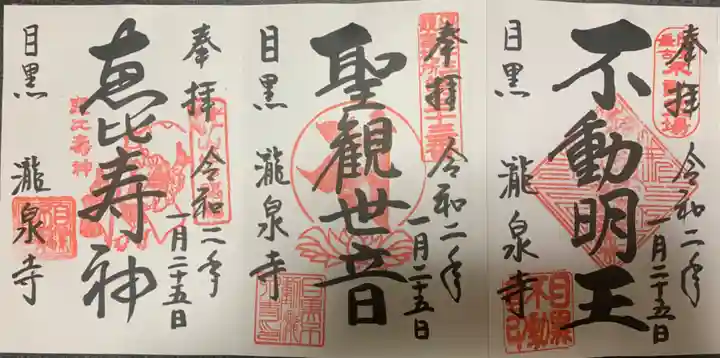 奉拝
令和二年
一月二十五日
不動明王
目黒
瀧泉寺
目黒
不動
奉拝
令和二年
一月二十五日
聖観世音
目黒
瀧泉寺
奉拝
令和二年
一月二十五日
恵比寿神
恵比寿神
目黒
瀧泉寺